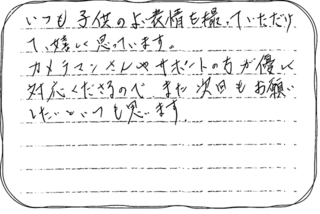 いつも子供のよい表情を撮っていただけ
て、嬉しく思っています。
カメラマンさんやサポートの方が優しく
対応くださるので、また次回もお願い
したいといつも思います。